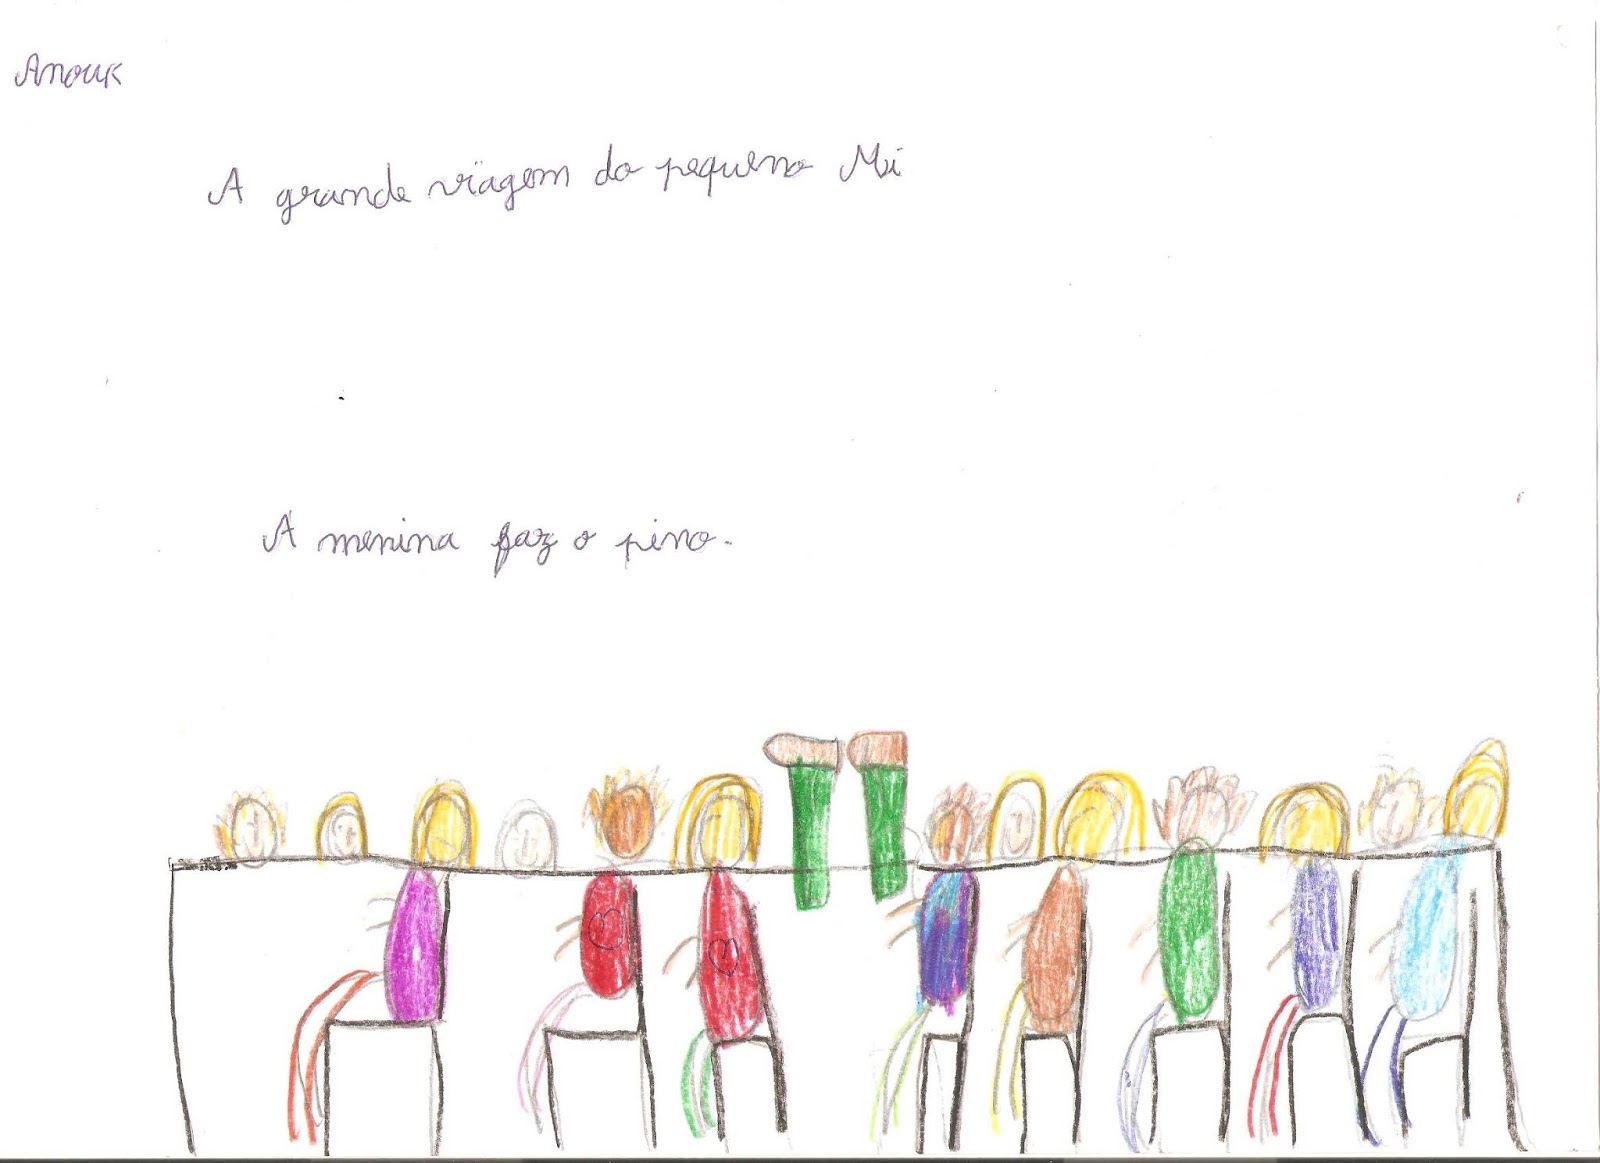 Anouk
A grande viagem do pequeno Mi
A menina faz o pino.